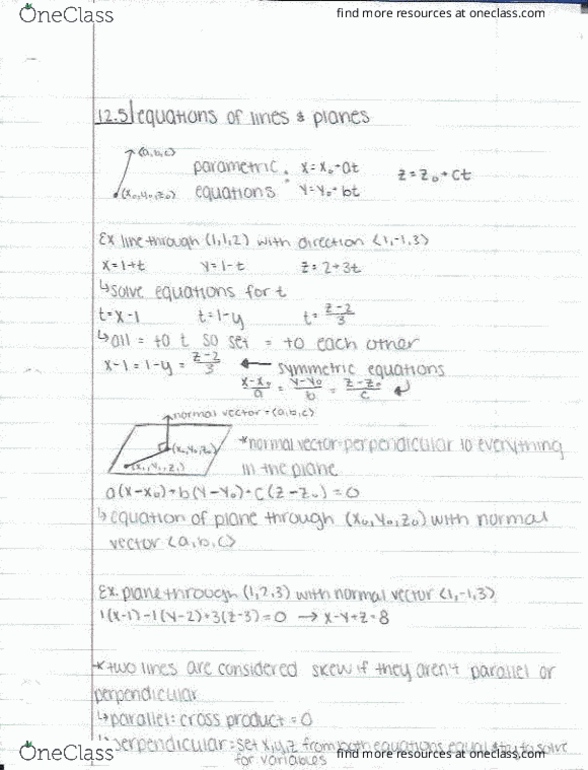 OneClass
find more resources at oneclass.com
12.5 equations of lines & planes
<a,b,c>
(x₀,y₀,z₀)
parametric : x=x₀+at z=z₀+ct
equations y=y₀+bt
Ex line through (1,1,2) with direction <1,-1,3>
x=1+t y=1-t z=2+3t
↳solve equations for t
t=x-1 t=1-y t=z-2/3
↳all = to t so set = to each other
x-1=1-y=z-2/3 ← symmetric equations
x-x₀/a = y-y₀/b = z-z₀/c ↵
normal vector=<a,b,c>
(x₀,y₀,z₀)
(x₁,y₁,z₁)
*normal vector=perpendicular to everything
in the plane
a(x-x₀)+b(y-y₀)+c(z-z₀)=0
↳equation of plane through (x₀,y₀,z₀) with normal
vector <a,b,c>
Ex. plane through (1,2,3) with normal vector <1,-1,3>
1(x-1)-1(y-2)+3(z-3)=0 → x-y+z=8
*two lines are considered skew if they aren't parallel or
perpendicular
↳parallel=cross product=0
↳perpendicular=set x,y,z from both equations equal to solve
for variables
OneClass
find more resources at oneclass.com